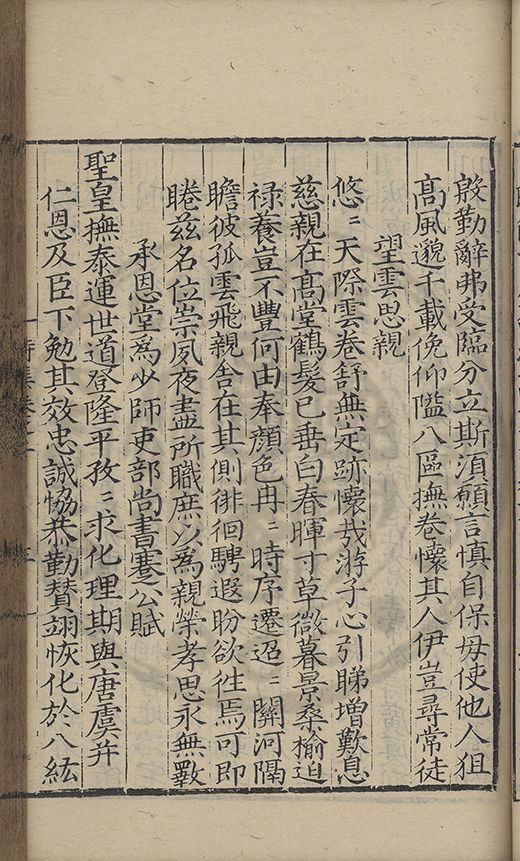 殷勤辭弗受臨分立斯須願言慎自保毋使他人狙
高風邈千載俛仰隘八區撫卷懷其人伊豈尋常徒
望雲思親
悠〻天際雲卷舒無定跡懷哉游子心引睇增歎息
慈親在高堂鶴髮已垂白春暉寸草微暮景桑榆迫
祿養豈不豐何由奉顏色冉〻時序遷迢〻關河隔
瞻彼孤雲飛親舍在其側徘徊騁遐盼欲往焉可即
睠茲名位崇夙夜盡所職庶以為親榮孝思永無斁
承恩堂為少師吏部尚書蹇公賦
聖皇撫泰運世道登隆平孜〻求化理期與唐虞并
仁恩及臣下勉其效忠誠恊恭勤贊翊恢化於八紘